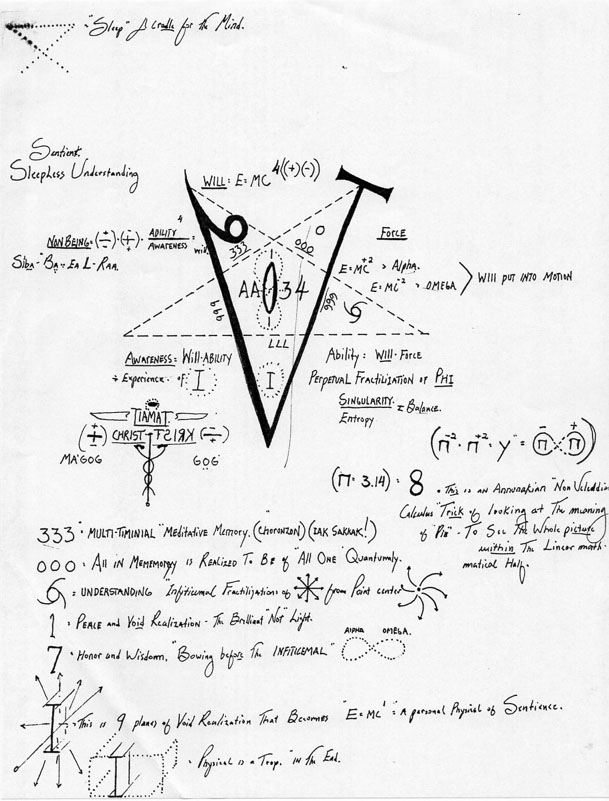 "Sleep" A Cradle for the Mind.
Sentient.
Sleepless Understanding
WILL = E=MC 4((+)(-))
NON BEING = (+/-) · (-/+) · ABILITY / AWARENESS 4 = Will
FORCE
E=MC+2 > Alpha.
E=MC-2 > OMEGA
Will put into Motion
6
333
000
O
999
666
AA 0 34
LLL
I
AWARENESS = Will-Ability
+ Experience. of I
Ability = Will-Force
Perpetual Fractilization of PHI
SINGULARITY. = Balance.
Entropy
TIAMAT
CHRIST TSIRK
MA'GOG
GOG
(Π-2 · Π+2 · Y" = Π- Π+)
(Π=3.14) = 8 · This is an Annunakian "Non
Calculus "Trick of looking at The meaning
of "Pie" - To See The Whole picture
within The Linear math-
matical Half.
333 = MULTI-TIMINIAL "Meditative Memory. (CHORONZON) (ZAK SAKKAK!)
000 = All in Mememory is Realized To Be of "All One" Quantumaly.
= UNDERSTANDING Infiticimal Fractilizations of from Point center
1 = Peace and Void Realization - The Brilliant "Not" Light.
ALPHA OMEGA.
7 = Honor and Wisdom. "Bowing before The INFITICEMAL"
= This is 9 planes of Void Realization That Becomes "E=MC1" = A personal Physical of Sentience.
= Physical is a Trap. "In The End.